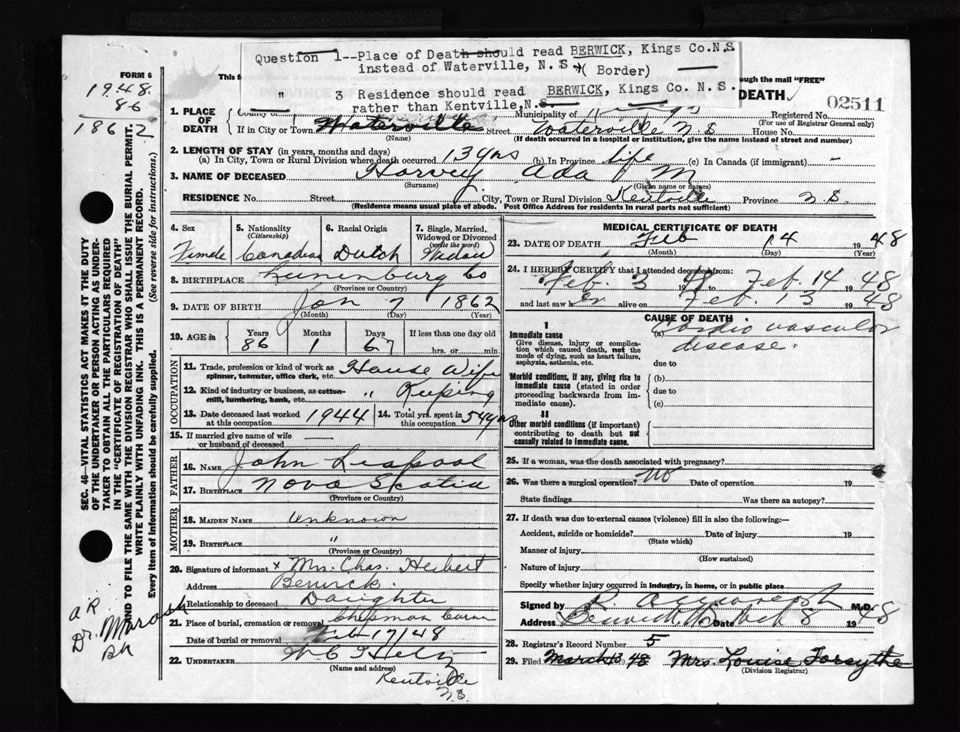 Question 1--Place of Death should read BERWICK, Kings Co.N.S
instead of Waterville, N.S. (Border)
3 Residence should read BERWICK, Kings Co. N.S.
rather than Kentville, N.S.
FORM 6
This f
through the mail "FREE"
DEATH
1948.
86
1862
02511
Registered No.
(For use of Registrar General only)
1. PLACE OF DEATH
County or
Municipality of Kings
If in City or Town Waterville Street Waterville N.S House No.
(Name) (If death occurred in a hospital or institution, give the name instead of street and number)
2. LENGTH OF STAY (in years, months and days)
(a) In City, Town or Rural Division where death occurred 13 yrs (b) In Province life (c) In Canada (if immigrant) -
3. NAME OF DECEASED Harvey Ada M
(Surname) (Given name or names)
RESIDENCE No. Street City, Town or Rural Division Kentville Province N.S.
(Residence means usual place of abode. Post Office Address for residents in rural parts not sufficient)
4. Sex
Female
5. Nationality
(Citizenship)
Canadian
6. Racial Origin
Dutch
7. Single, Married,
Widowed or Divorced
(write the word)
Widow
8. BIRTHPLACE Lunenburg Co
(Province or Country)
9. DATE OF BIRTH Jan 7 1862
(Month) (Day) (Year)
10. AGE in
Years Months Days If less than one day old
86 1 67 hrs. or min.
OCCUPATION
11. Trade, profession or kind of work as House Wife
spinner, teamster, office clerk, etc.
12. Kind of industry or business, as cotton- " Keeping
mill, lumbering, bank, etc.
13. Date deceased last worked
at this occupation 1944
14. Total yrs. spent in
this occupation 54 yrs
15. If married give name of wife
or husband of deceased
FATHER
16. NAME John Leapool
17. BIRTHPLACE Nova Skotia
(Province or Country)
MOTHER
18. MAIDEN NAME unknown
19. BIRTHPLACE "
(Province or Country)
20. Signature of informant x Mrs. Chas. Herbert
Address Berwick.
Relationship to deceased Daughter
21. Place of burial, cremation or removal
Date of burial or removal Feb 17/48
22. UNDERTAKER
(Name and address)
Kentville
N.S.
MEDICAL CERTIFICATE OF DEATH
23. DATE OF DEATH Feb 14 1948
(Month) (Day) (Year)
24. I HEREBY CERTIFY that I attended deceased from:
Feb. 3 48 Feb. 14 1948
and last saw her alive on Feb. 13 1948
CAUSE OF DEATH
I
Immediate cause
Give disease, injury or complica-
tion which caused death, not the
mode of dying, such as heart failure,
asphyxia, asthenia, etc.
Cardio vascular
disease.
due to
Morbid conditions, if any, giving rise to
immediate cause (stated in order
proceeding backwards from im-
mediate cause).
(b)
due to
(c)
II
Other morbid conditions (if important)
contributing to death but not
causally related to immediate cause.
25. If a woman, was the death associated with pregnancy?
26. Was there a surgical operation? no Date of operation 19
State findings Was there an autopsy?
27. If death was due to external causes (violence) fill in also the following:
Accident, suicide or homicide? Date of injury 19
(State which)
Manner of injury
(How sustained)
Nature of injury
Specify whether injury occurred in industry, in home, or in public place
Signed by M.D.
Address Berwick Date 1948
28. Registrar's Record Number 5
29. Filed March 13 48 Mrs. Louise Forsythe
(Division Registrar)
SEC. 46—VITAL STATISTICS ACT MAKES IT THE DUTY
OF THE UNDERTAKER OR PERSON ACTING AS UNDER-
TAKER TO OBTAIN ALL THE PARTICULARS REQUIRED
IN THE "CERTIFICATE OF REGISTRATION OF DEATH"
AND TO FILE THE SAME WITH THE DIVISION REGISTRAR WHO SHALL ISSUE THE BURIAL PERMIT.
WRITE PLAINLY WITH UNFADING INK. THIS IS A PERMANENT RECORD.
Every item of information should be carefully supplied. (See reverse side for instructions.)
Dr.